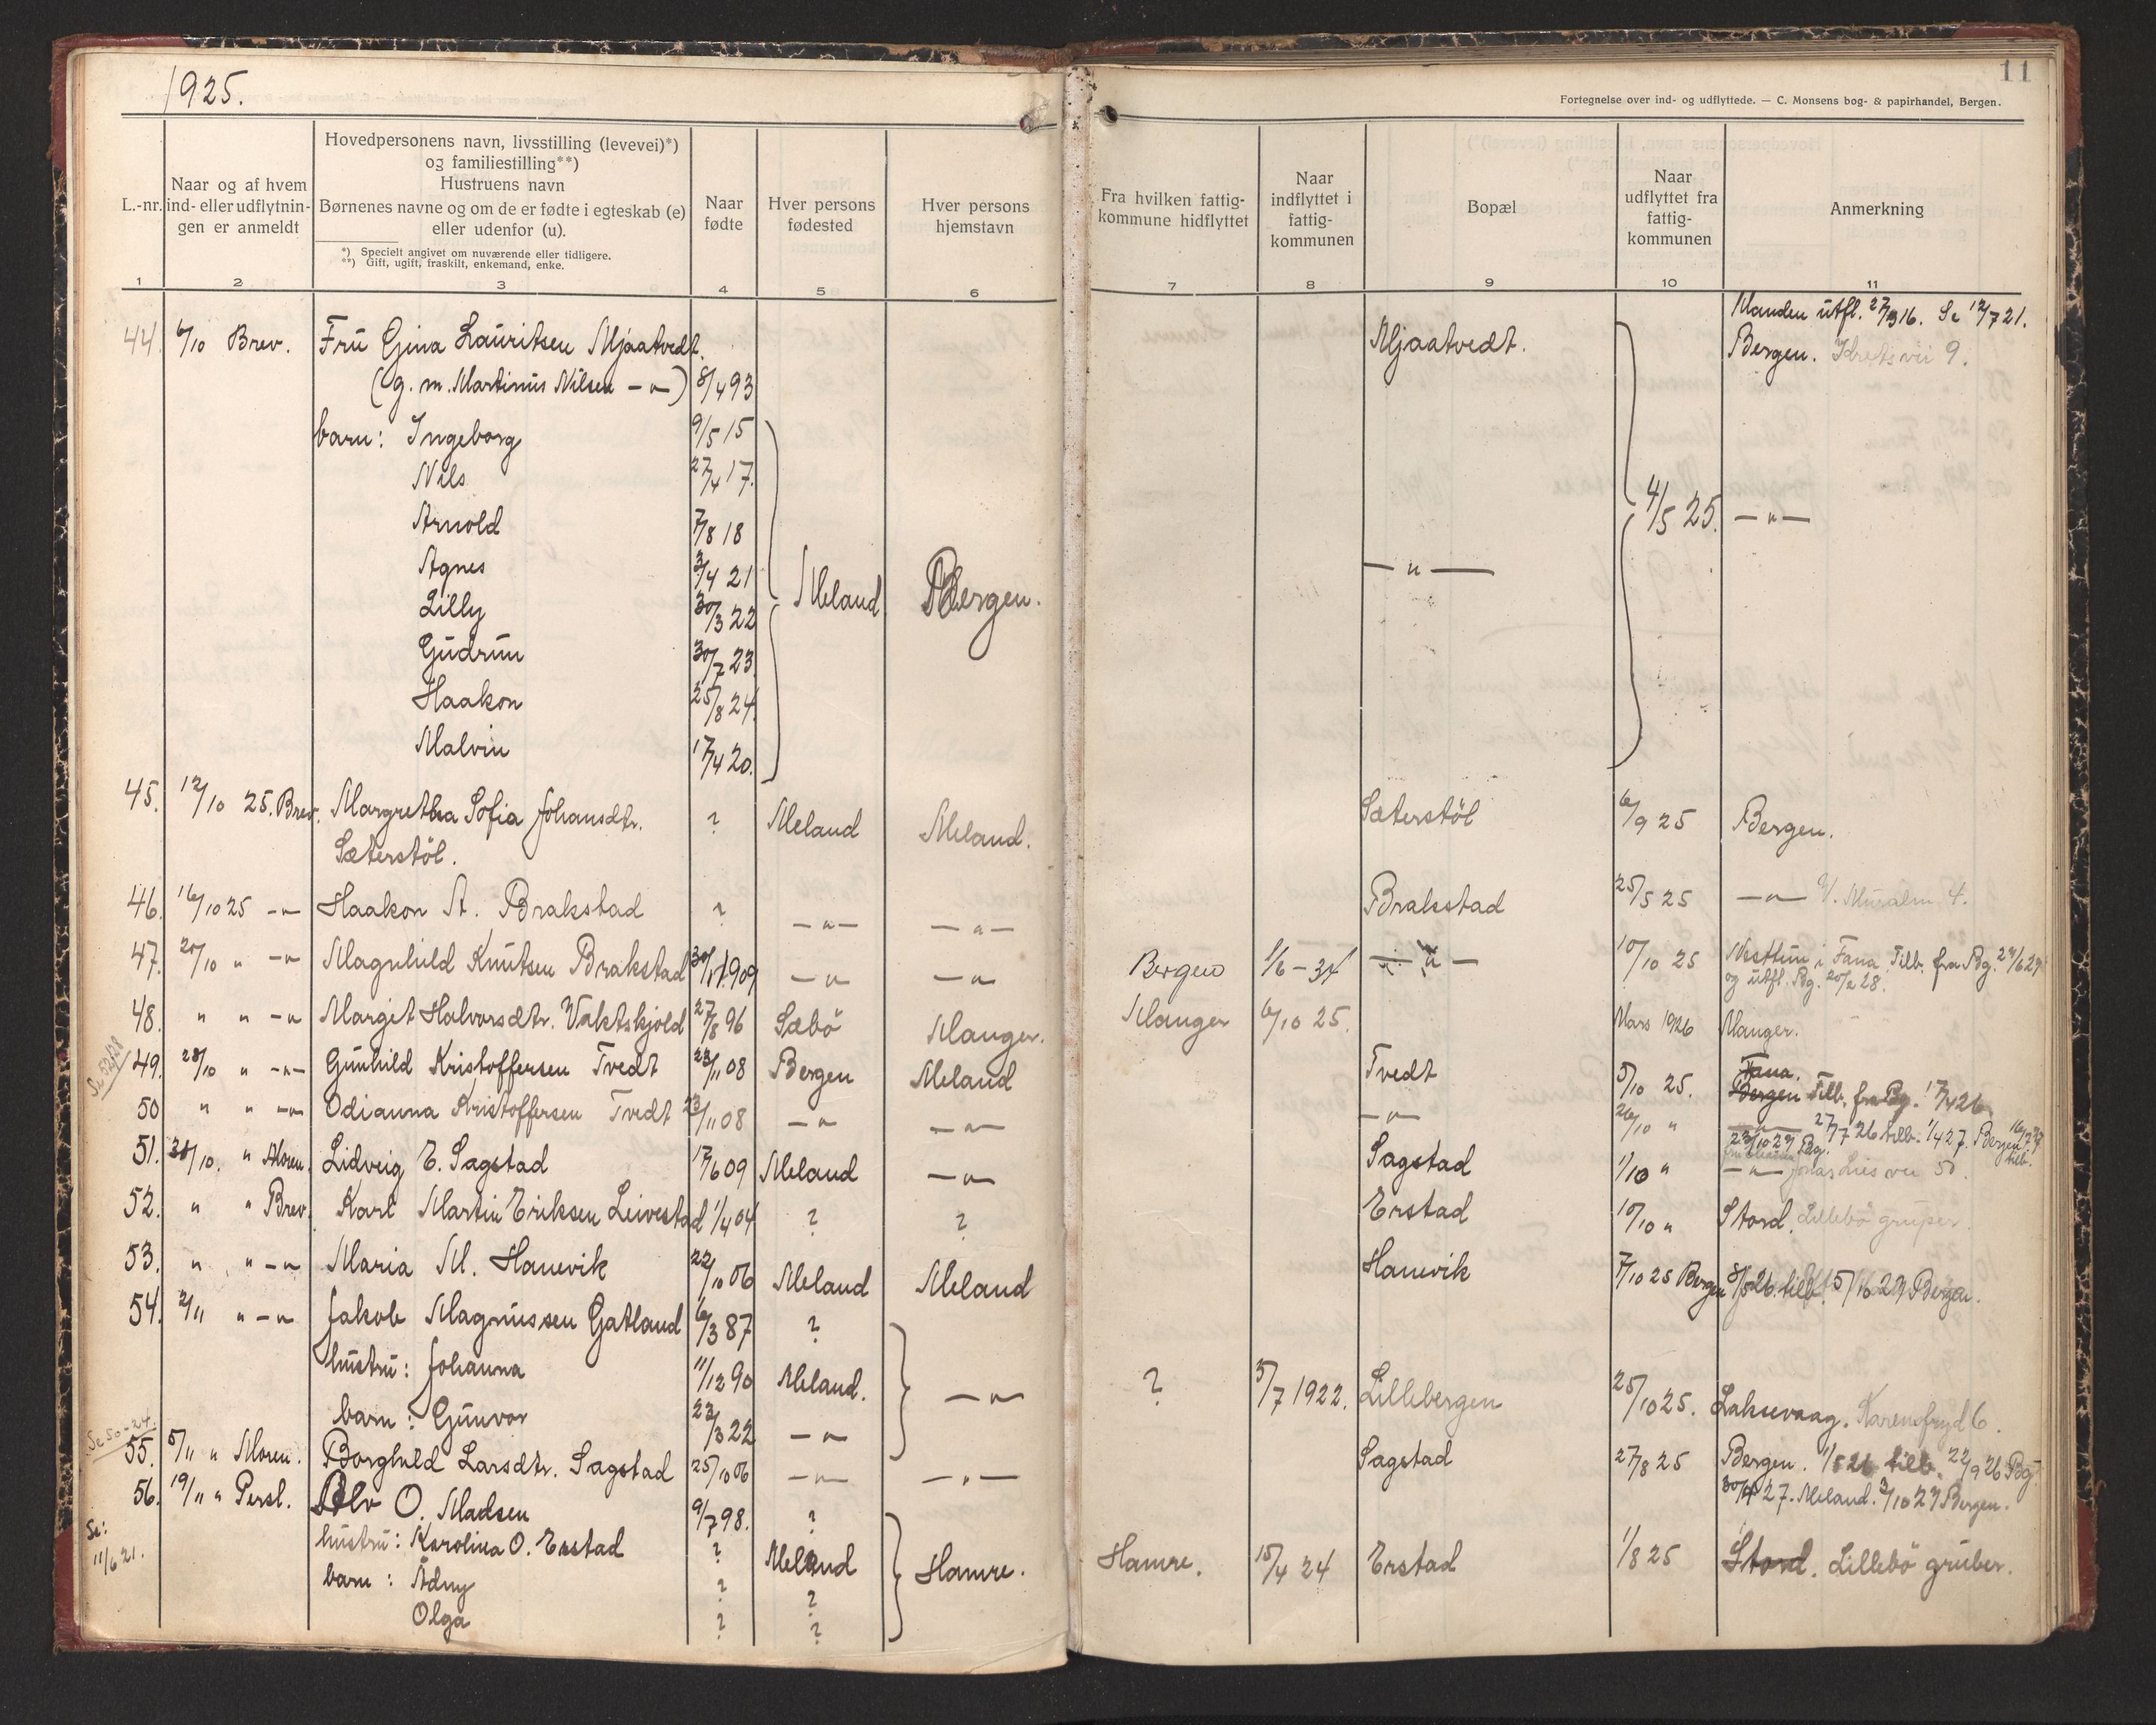 1925.
11
Fortegnelse over ind- og udflyttede. — C. Monsens bog- & papirhandel, Bergen.
L.-nr.
Naar og af hvem ind- eller udflytnin- gen er anmeldt
Hovedpersonens navn, livsstilling (levevei)*)
og familiestilling**)
Hustruens navn
Børnenes navne og om de er fødte i egteskab (e)
eller udenfor (u).
*) Specielt angivet om nuværende eller tidligere.
**) Gift, ugift, fraskilt, enkemand, enke.
Naar fødte
Hver persons fødested
Hver persons hjemstavn
Fra hvilken fattig- kommune hidflyttet
Naar indflyttet i fattig- kommunen
Bopæl
Naar udflyttet fra fattig- kommunen
Anmerkning
1 2 3 4 5 6 7 8 9 10 11
Manden utfl. 27/3 16. Se 12/7 21.
44. 6/10 Brev. Fru Gina Lauritsen Mjaatvedt. Mjaatvedt. Bergen.
(g. m. Martinus Nilsen —"—) 8/4 93
barn: Ingeborg 9/5 15
Nils 27/4 17.
Arnold 7/8 18 4/5 25. —"—
Agnes 3/4 21 —"—
Lilly 30/3 22 Meland Bergen.
Gudrun 30/7 23
Haakon 25/8 24.
Malvin 17/4 20.
45. 12/10 25. Brev. Margretha Sofia Johansdtr. ? Meland Meland. Sæterstöl 6/9 25 Bergen.
Sæterstöl.
46. 16/10 25 —"— Haakon A. Brakstad ? —"— —"— Brakstad 25/5 25 —"— 4.
47. 20/10 " —"— Magnhild Knutsen Brakstad 30/11 1909 —"— —"— Bergen 1/6 - 34 —"— 10/10 25 Nesttun i Fana. Tilb. fra Bg. 24/6 27
og utfl. Bg. 20/2 28.
48. " " —"— Margit Halvorsdtr. Vaktskjold 27/8 96 Sæbö Manger. Manger 6/10 25. Mars 1926 Manger.
Se 52/28
49. 28/10 " —"— Gunhild Kristoffersen Tvedt 23/11 08 Bergen Meland Tvedt 5/10 25. Fana.
Bergen Tilb. fra Bg. 17/4 26
50 " " —"— Odianna Kristoffersen Tvedt 23/11 08 —"— —"— —"— 26/10 " —"— 27/7 26 tilb. 1/4 27. Bergen
23/10 27 Bg. tilb.
51. 28/10. " Moren. Lidveig E. Sagstad 17/6 09 Meland —"— Sagstad 1/10 " —"— Jonas Lies vei 50.
52. " " Brev. Karl Martin Eriksen Leivestad 1/4 04 ? ? Erstad 10/10 " Stord. Lillebö gruper.
53. " " —"— Maria M. Hanevik 22/10 06 Meland Meland Hanevik 7/10 25 Bergen 8/5 26. tilb. 5/10 27 Bergen.
54. 2/11 " —"— Jakob Magnussen Gatland 6/3 87 ?
hustru: Johanna 11/12 90 Meland. —"— ? 5/7 1922. Lillebergen 25/10 25. Laksevaag. Karensfryd 6.
barn: Gunvor 23/3 22 —"—
Se 50-24.
55. 5/11 " Moren. Borghild Larsdtr. Sagstad 25/10 06 —"— —"— Sagstad 27/8 25 Bergen. 1/5 26 tilb. 22/9 26 Bg.
30/4 27. Meland. 3/10 27 Bergen.
56. 19/11 " Persl. Alv O. Madsen 9/7 98. ?
Se:
11/6 21.
hustru: Karolina O. Erstad ? Meland Hamre. Hamre. 15/4 24 Erstad 1/8 25 Stord. Lillebö gruber.
barn: Ådny ? ?
Olga ? ?